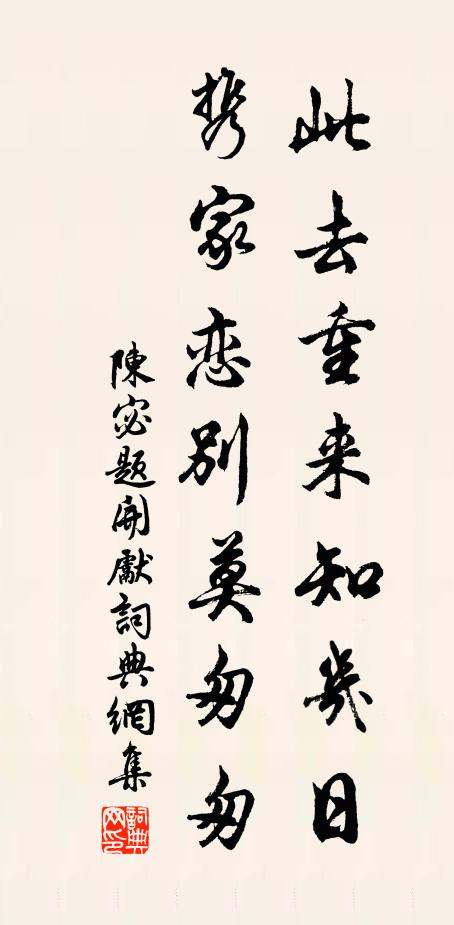 此去重来知幾日
携家恋别莫匆匆
陳宓题開獻詞典網集
詞典網印